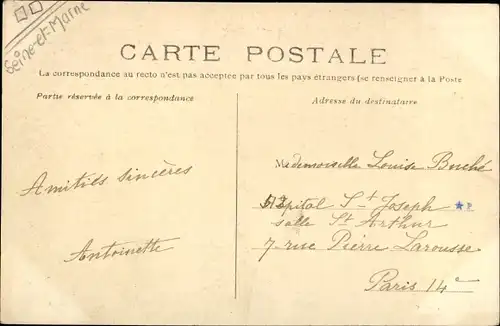 Seine-et-Marne
CARTE POSTALE
La correspondance au recto n'est pas acceptée par tous les pays étrangers (se renseigner à la Poste
Partie réservée à la correspondance
Adresse du destinataire
Mademoiselle Louise Buché
Amitiés sincères
Hôpital St Joseph
★P
salle St Arthur
Antoinette
7 rue Pierre Larousse
Paris 14e